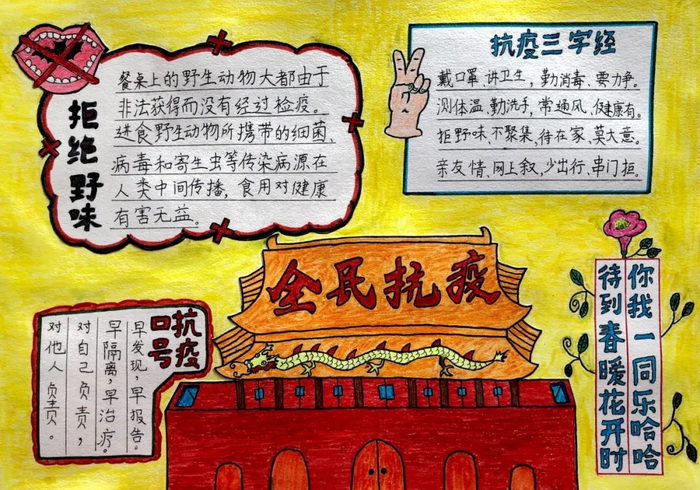 拒绝野味
餐桌上的野生动物大都由于
非法获得而没有经过检疫。
进食野生动物所携带的细菌、
病毒和寄生虫等传染病源在
人类中间传播，食用对健康
有害无益。
抗疫三字经
戴口罩、讲卫生，勤消毒、要力争。
测体温、勤洗手，常通风、促健康有。
拒野味、不聚集，待在家、莫大意。
亲友情、网上叙，少出行、串门拒。
全民抗疫
抗疫
口号
早发现，早报告。
早隔离，早治疗。
对自己负责，
对他人负责。
你我一同乐哈哈
待到春暖花开时